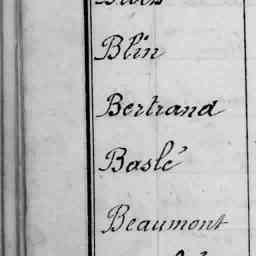 Blin
Bertrand
Baslé
Beaumont